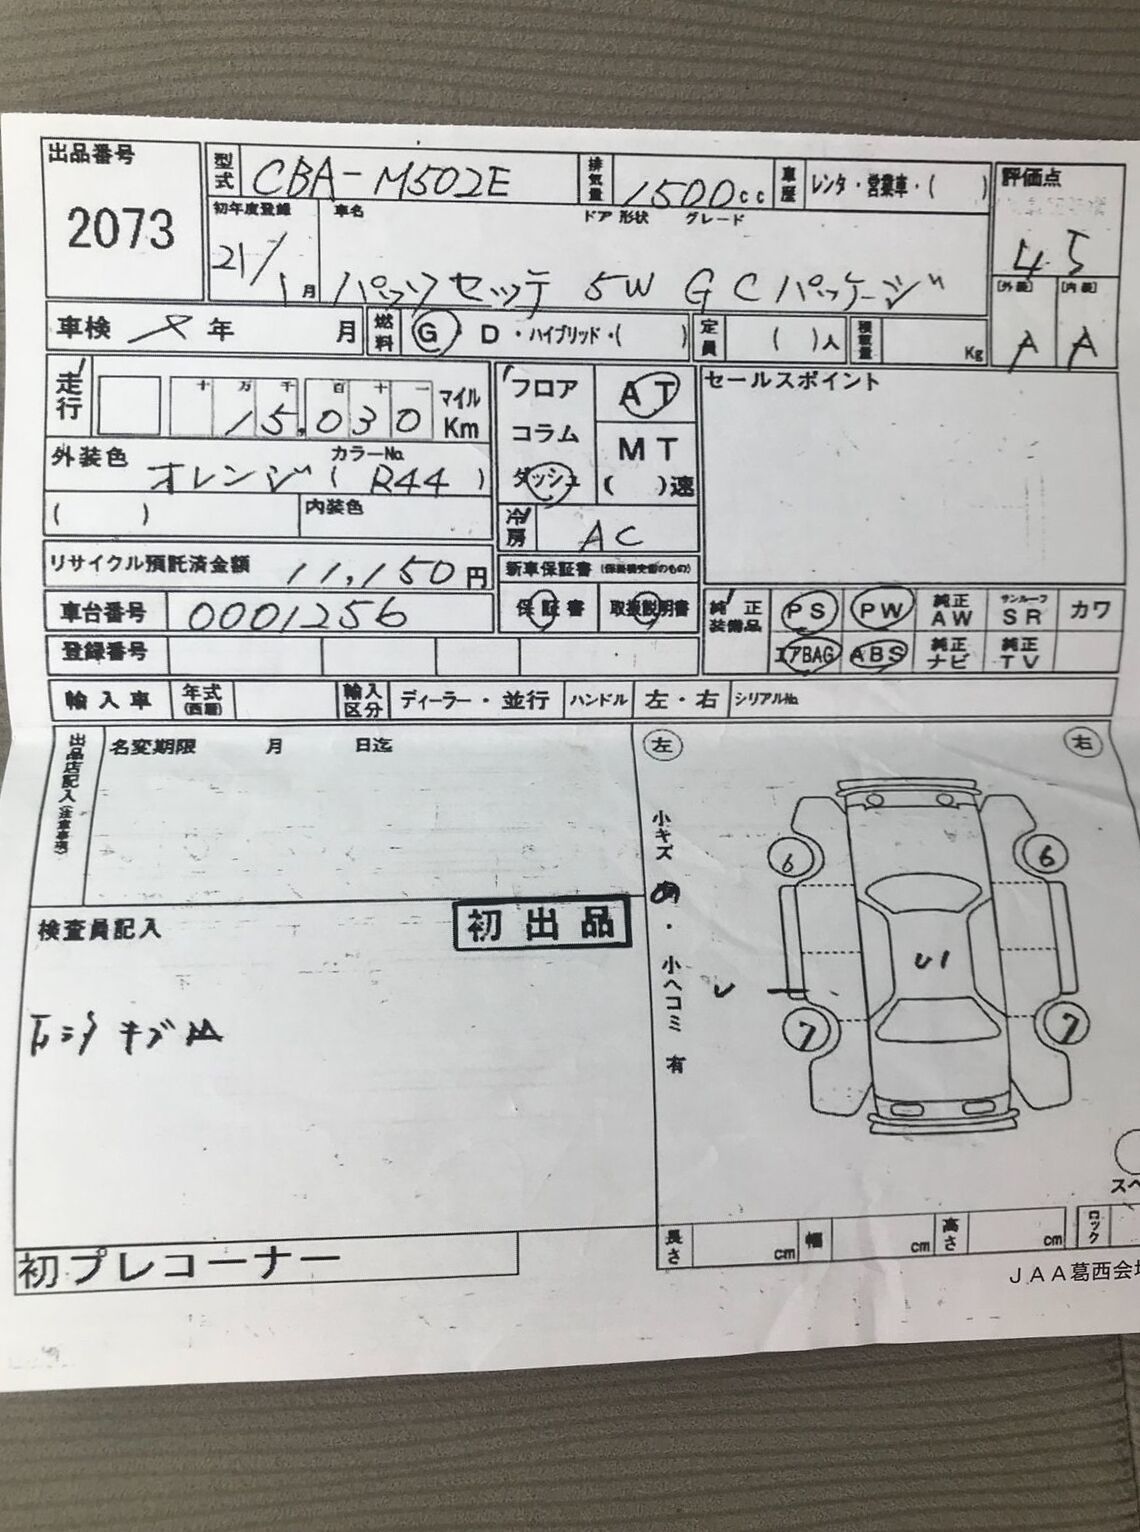 出品番号
2073
型式 CBA-M502E 排気量 1500cc 車歴 レンタ・営業車・( )
評価点
4.5
[外装] [内装]
A A
初年度登録 21/1月
車名 ドア 形状 グレード
パッソセッテ 5W G Cパッケージ
車検 年 月
燃料 G D・ハイブリッド・( ) 定員 ( )人 積載量 Kg
走行 十 万 千 百 十 一 マイル
15.030 Km
外装色 オレンジ カラーNo. ( R44 )
( ) 内装色
フロア AT
コラム MT
ダッシュ ( )速
冷房 AC
セールスポイント
リサイクル預託済金額 11,150円
新車保証書
保証書 取扱説明書
車台番号 0001256
登録番号
純正装備品 PS PW 純正AW サンルーフSR カワ
エアBAG ABS 純正ナビ 純正TV
輸入車 年式(西暦) 輸入区分 ディーラー・並行 ハンドル 左・右 シリアルNo.
出品店記入(注意事項)
名変期限 月 日迄
検査員記入
初出品
キズ
左 右
小キズ
・小ヘコミ 有
6 6
U1
7 7
長さ cm 幅 cm 高さ cm ロック
スペ
初プレコーナー
JAA葛西会場